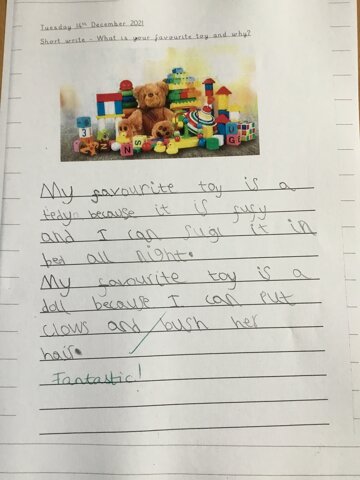 Tuesday 14th December, 2021
Short write - What is your favourite toy and why?
My favourite toy is a
tedy because it is fusy
and I can it in
bed all night.
My favourite toy is a
doll because I can put
clows and bush her
hair.
Fantastic!